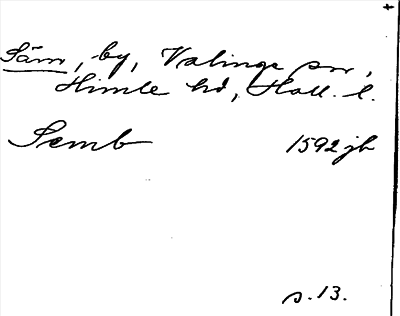 Säm, by, Valinge sn,
Himle hd, Hall. l.
Semb 1592 jb
s. 13.